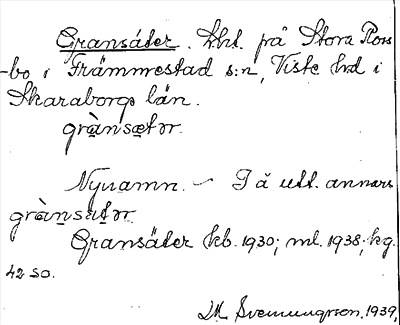 Gransäter. Lht. på Stora Ross-
-bo i Främmestad s:n, Viste hd i
Skaraborgs län.
grànsætər.
Nynamn. – I ä utt. annars
grànsætər.
Gransäter kb. 1930; ml. 1938; kg.
42 SO.
Svenungsson. 1939.